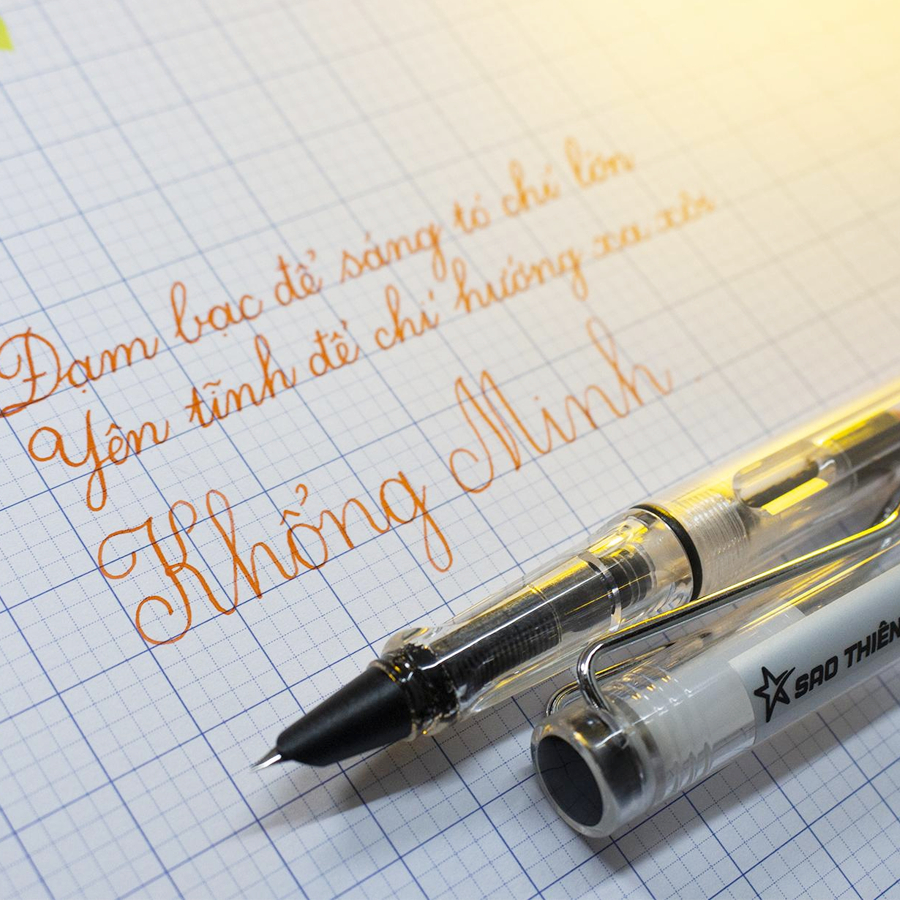 Đạm bạc để sáng tỏ chí lớn
Yên tĩnh để chí hướng xa xôi
Khổng Minh
SAO THIÊN